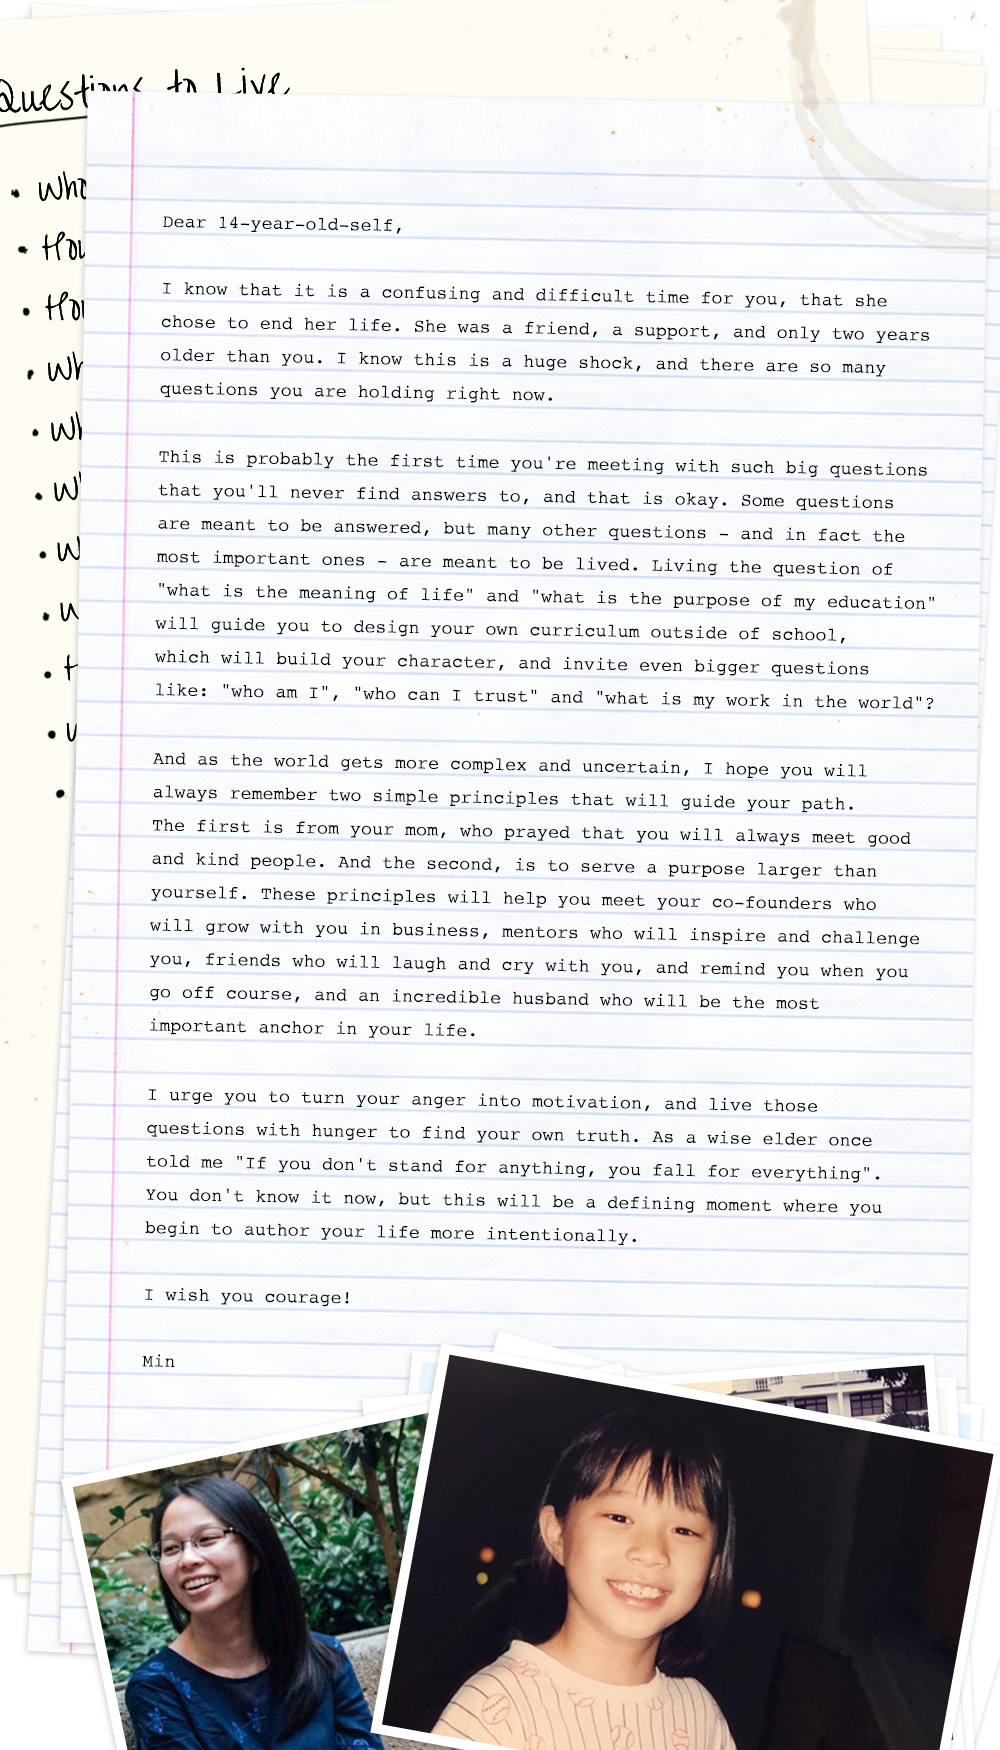 Questions to Live
Dear 14-year-old-self,
I know that it is a confusing and difficult time for you, that she
chose to end her life. She was a friend, a support, and only two years
older than you. I know this is a huge shock, and there are so many
questions you are holding right now.
This is probably the first time you're meeting with such big questions
that you'll never find answers to, and that is okay. Some questions
are meant to be answered, but many other questions - and in fact the
most important ones - are meant to be lived. Living the question of
"what is the meaning of life" and "what is the purpose of my education"
will guide you to design your own curriculum outside of school,
which will build your character, and invite even bigger questions
like: "who am I", "who can I trust" and "what is my work in the world"?
And as the world gets more complex and uncertain, I hope you will
always remember two simple principles that will guide your path.
The first is from your mom, who prayed that you will always meet good
and kind people. And the second, is to serve a purpose larger than
yourself. These principles will help you meet your co-founders who
will grow with you in business, mentors who will inspire and challenge
you, friends who will laugh and cry with you, and remind you when you
go off course, and an incredible husband who will be the most
important anchor in your life.
I urge you to turn your anger into motivation, and live those
questions with hunger to find your own truth. As a wise elder once
told me "If you don't stand for anything, you fall for everything".
You don't know it now, but this will be a defining moment where you
begin to author your life more intentionally.
I wish you courage!
Min